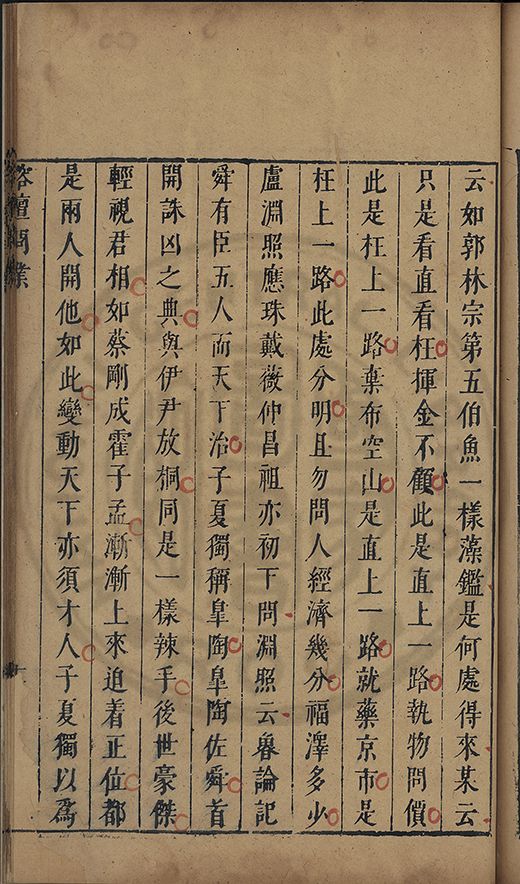 云如郭林宗第五伯魚一樣藻鑑是何處得來某云
只是看直看枉揮金不顧此是直上一路執物問價
此是枉上一路棄布空山是直上一路就藥京市是
枉上一路此處分明且勿問人經濟幾分福澤多少
盧淵照應珠戴薇仲昌祖亦初下問淵照云魯論記
舜有臣五人而天下治子夏獨稱皐陶皐陶佐舜首
開誅凶之典與伊尹放桐同是一樣辣手後世豪傑
輕視君相如蔡剛成霍子孟漸漸上來迫着正位都
是兩人開他如此變動天下亦須才人子夏獨以爲
榕壇問業